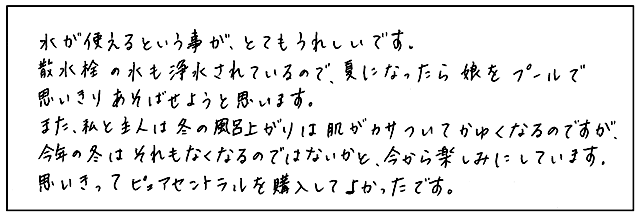 水が使えるという事が、とてもうれしいです。
散水栓の水も浄水されているので、夏になったら娘をプールで
思いきりあそばせようと思います。
また、私と主人は冬の風呂上がりは肌がカサついてかゆくなるのですが、
今年の冬はそれもなくなるのではないかと、今から楽しみにしています。
思いきってピュアセントラルを購入してよかったです。